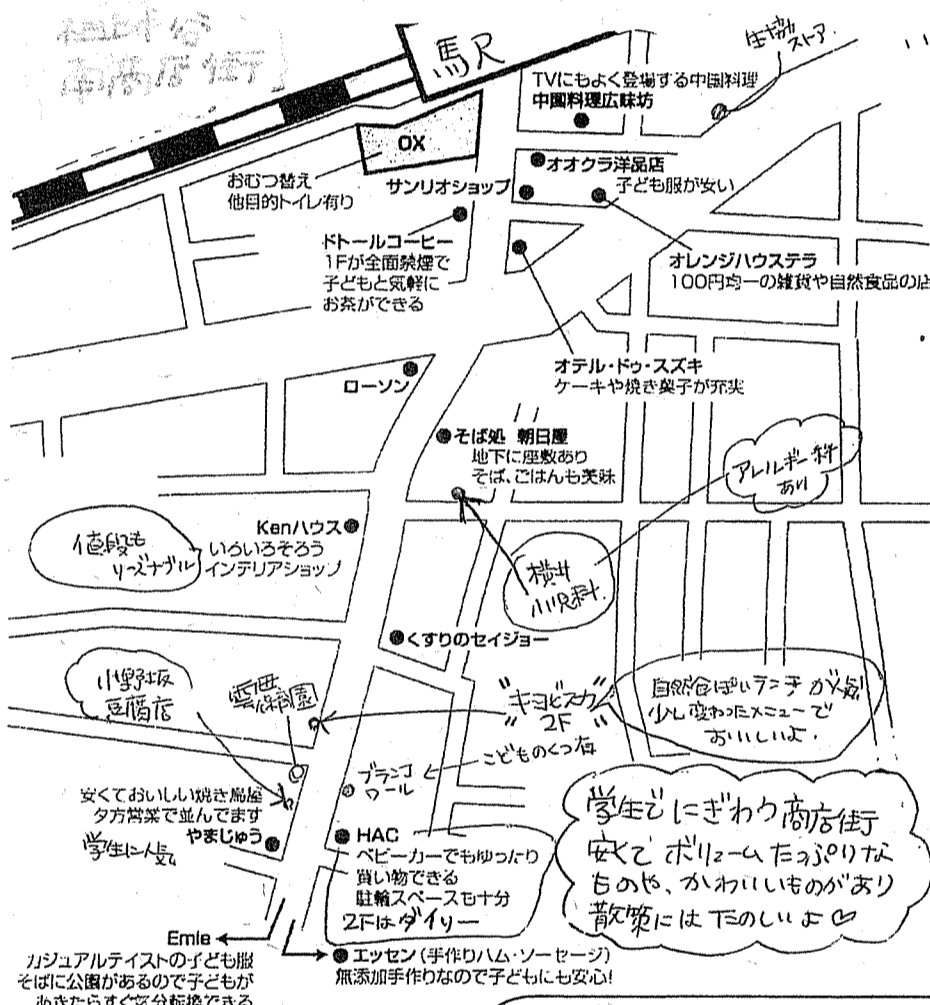 祖師谷
南商店街
駅
生協
ストア
TVにもよく登場する中国料理
中國料理広味坊
OX
おむつ替え
他目的トイレ有り
サンリオショップ
オオクラ洋品店
子ども服が安い
ドトールコーヒー
1Fが全面禁煙で
子どもと気軽に
お茶ができる
オレンジハウステラ
100円均一の雑貨や自然食品の店
オテル・ドゥ・スズキ
ケーキや焼き菓子が充実
ローソン
そば処 朝日屋
地下に座敷あり
そば、ごはんも美味
アレルギー科
あり
値段も
リーズナブル
Kenハウス
いろいろそろう
インテリアショップ
横井
小児科
くすりのセイジョー
小野坂
豆腐店
保育園
"キヨビスカ"
2F
自然食ぽいランチが人気
少し変わったメニューで
おいしいよ。
こどものくつ有
ブランコ
ワール
安くておいしい焼き鳥屋
夕方営業で並んでます
やまじゅう
学生に人気
HAC
ベビーカーでもゆったり
買い物できる
駐輪スペースも十分
2Fはダイソー
学生でにぎわう商店街
安くてボリュームたっぷりな
ものや、かわいいものがあり
散策にはたのしいよ♡
Emie
カジュアルテイストの子ども服
そばに公園があるので子どもが
あきたらすぐ気分転換できる
エッセン(手作りハム・ソーセージ)
無添加手作りなので子どもにも安心!